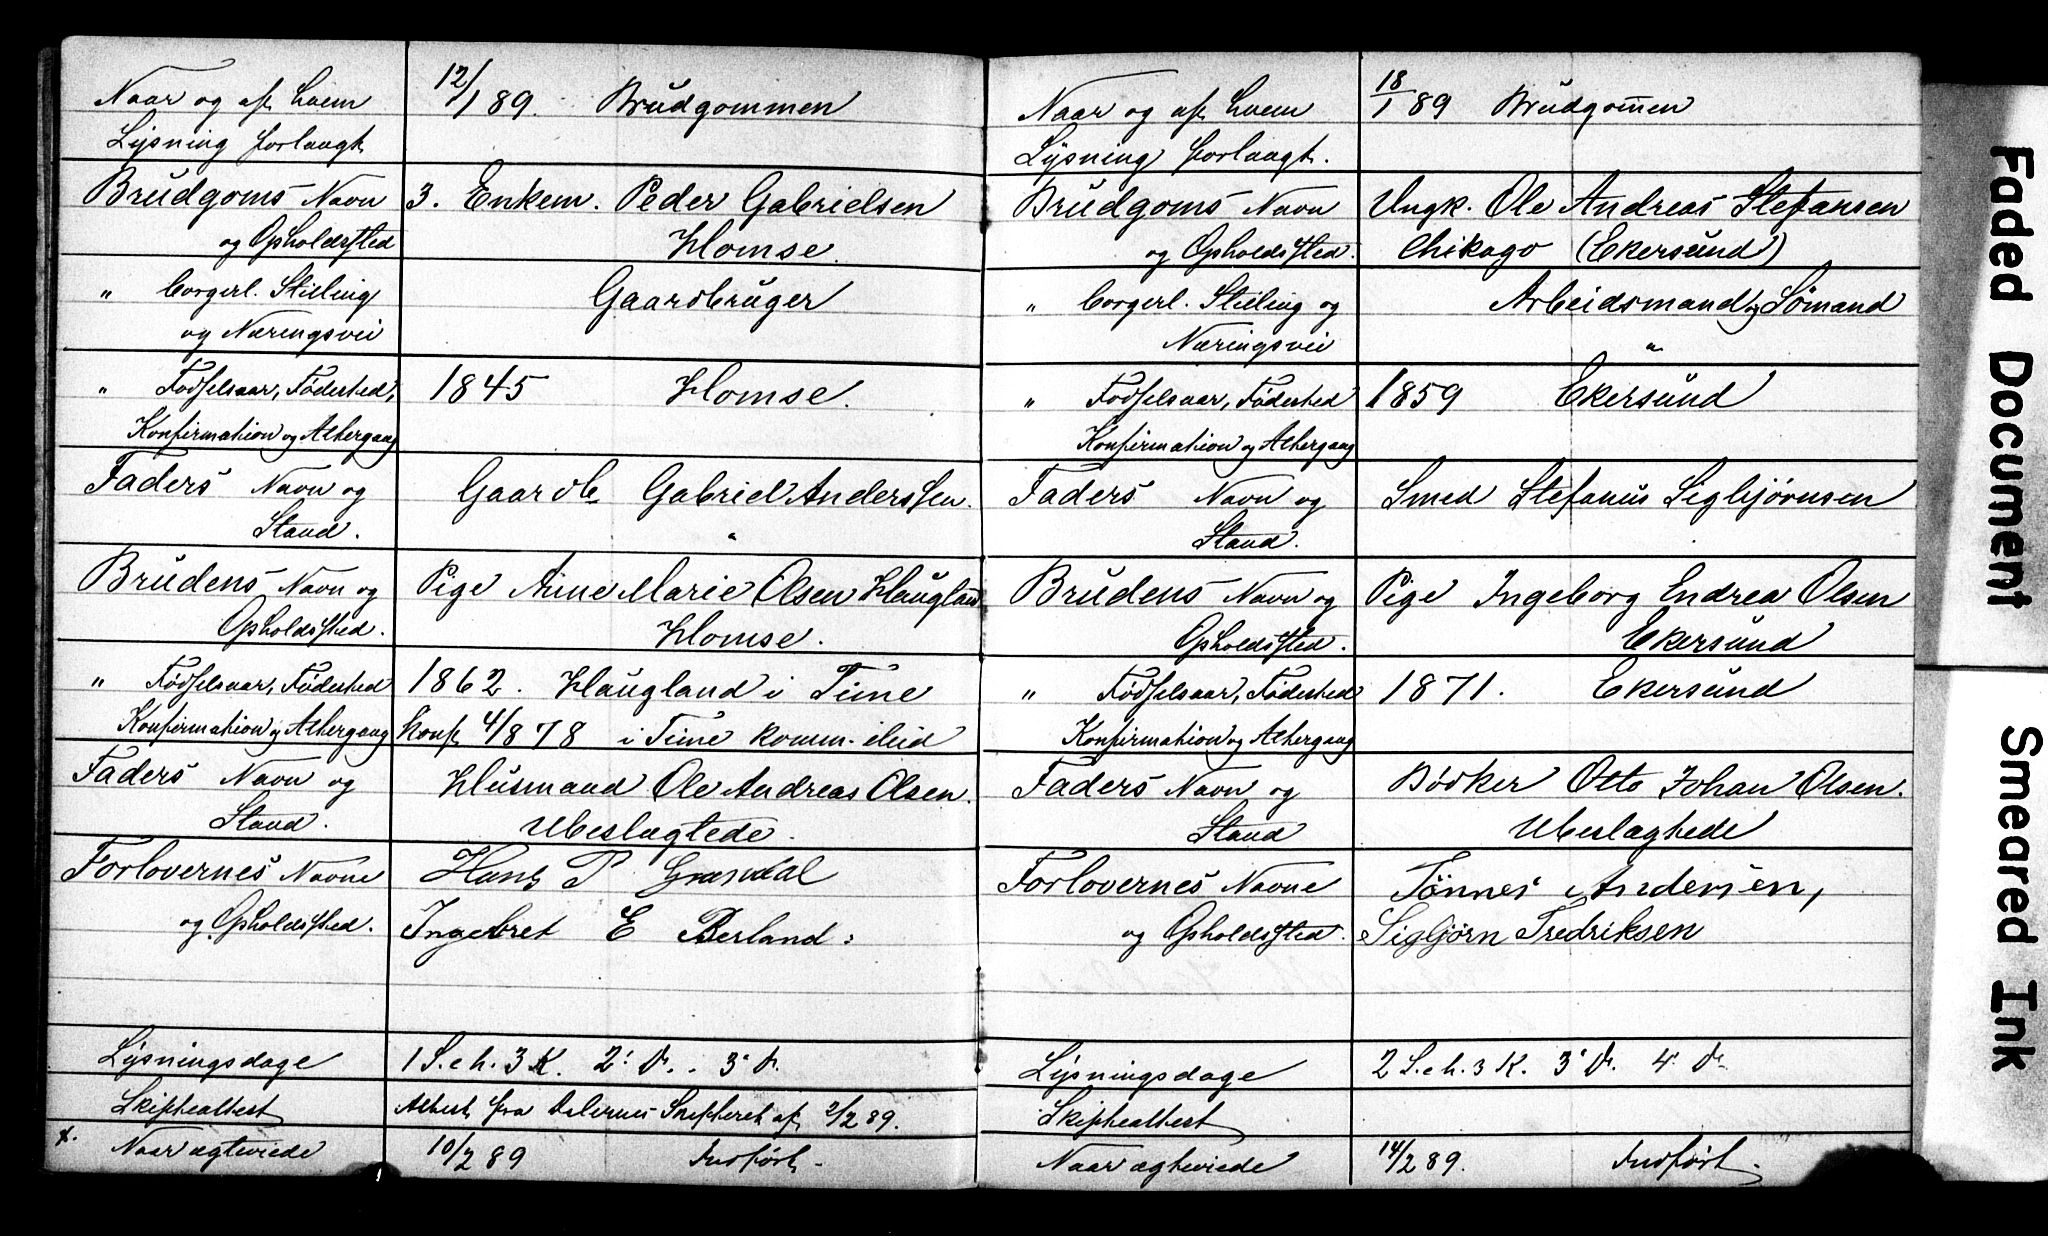 Naar og af hvem 12/1 89. Brudgommen
Lysning forlangt
Brudgoms Navn 3. Enkem. Peder Gabrielsen
og Opholdssted Homse.
" borgerl. Stilling Gaardbruger
og Næringsvei
" Fødselsaar, Fødested, 1845 Homse.
Konfirmation og Altergang
Faders Navn og Gaardb. Gabriel Anderssen.
Stand. "
Brudens Navn og Pige Ane Marie Olsen Haugland
Opholdssted. Homse.
" Fødselsaar, Fødested 1862. Haugland i Time
Konfirmation og Altergang konf. 4/8 78 i Time komm.
Faders Navn og Husmand Ole Andreas Olsen.
Stand. Ubeslægtede.
Forlovernes Navne Hans P Grøsdal
og Opholdssted. Ingebret E Berland:
Lysningsdage 1 S. e h. 3 K. 2' D. . 3' D.
Skifteattest Attest fra Dalernes Skifteret af 2/2 89.
x. Naar ægteviede 10/2 89 Indført.
Naar og af hvem 18/1 89 Brudgom̄en
Lysning forlangt.
Brudgoms Navn Ungk. Ole Andreas Stefansen
og Opholdssted. Chikago (Ekersund)
" borgerl. Stilling og Arbeidsmand og Sømand
Næringsvei "
" Fødselsaar, Fødested 1859 Ekersund
Konfirmation og Altergang
Faders Navn og Smed Stefanus Sigbjørnsen
Stand.
Brudens Navn og Pige Ingeborg Endrea Olsen
Opholdssted. Ekersund
" Fødselsaar, Fødested 1871. Ekersund
Konfirmation og Altergang
Faders Navn og Bødker Otto Johan Olsen.
Stand Ubeslægtede
Forlovernes Navne Tönnes Andersen,
og Opholdssted. Sigbjörn Fredriksen
Lysningsdage 2 S. e h. 3 K. 3' D. 4' D.
Skifteattest
Naar ægteviede 14/2 89. Indført.
Faded Document
Smeared Ink